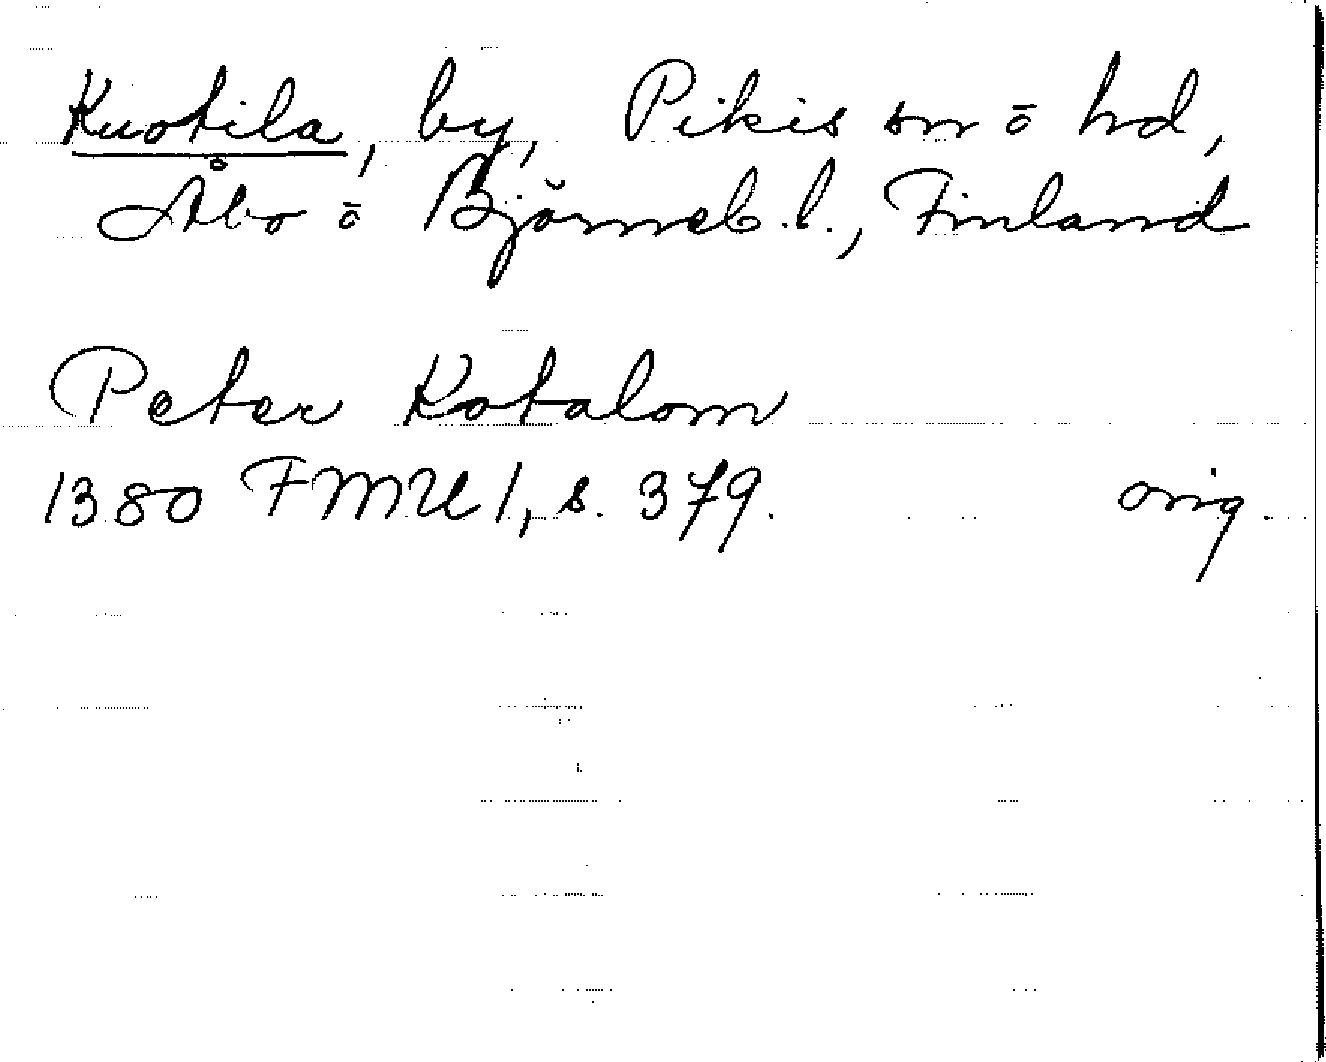 Kuotila, by, Pikis sn ō hd,
Åbo ō Björneb. l., Finland
Peter Kotalom
1380 FMU 1, s. 379. orig.